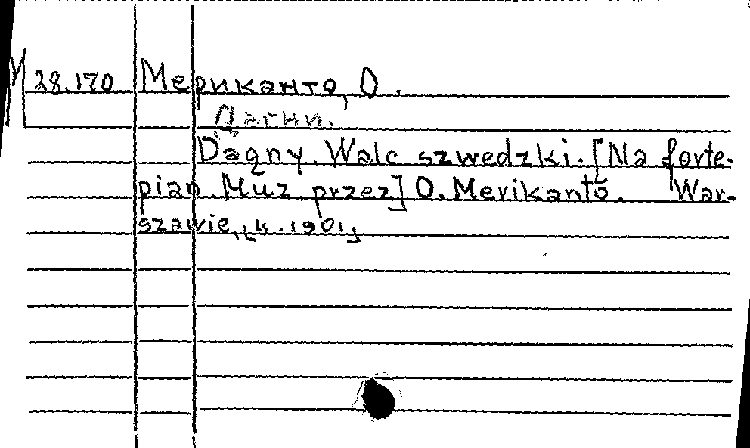 М 28.170 Мериканто, О.
Дагни.
Dagny. Walc szwedzki. [Na forte-
pian. Muz przez] O. Merikanto. War-
szawie, 1901,